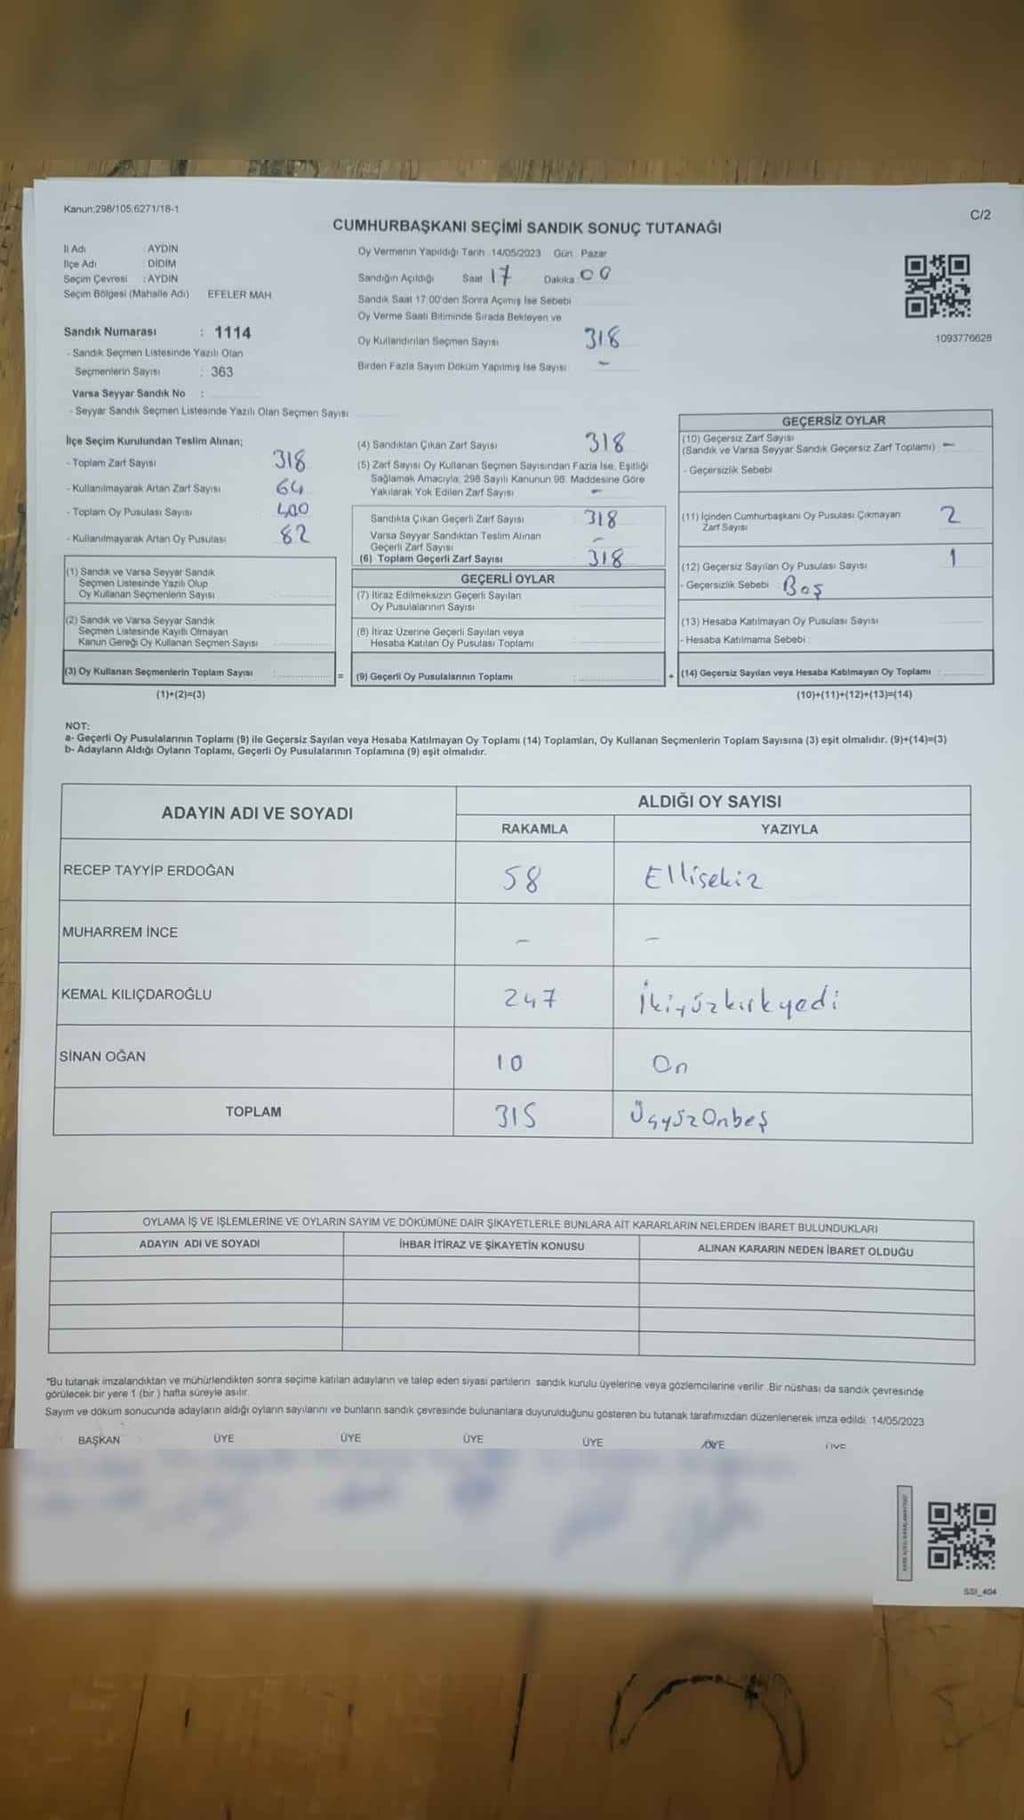 Kanun:298/105,6271/18-1
C/2
CUMHURBAŞKANI SEÇİMİ SANDIK SONUÇ TUTANAĞI
İl Adı : AYDIN
İlçe Adı : DİDİM
Seçim Çevresi : AYDIN
Seçim Bölgesi (Mahalle Adı) EFELER MAH.
Sandık Numarası : 1114
- Sandık Seçmen Listesinde Yazılı Olan
Seçmenlerin Sayısı : 363
Varsa Seyyar Sandık No :
- Seyyar Sandık Seçmen Listesinde Yazılı Olan Seçmen Sayısı
Oy Vermenin Yapıldığı Tarih 14/05/2023 Gün : Pazar
Sandığın Açıldığı Saat 17 Dakika 00
Sandık Saat 17:00'den Sonra Açımış İse Sebebi
Oy Verme Saati Bitiminde Sırada Bekleyen ve
Oy Kullandırılan Seçmen Sayısı 318
Birden Fazla Sayım Döküm Yapılmış İse Sayısı -
1093776628
İlçe Seçim Kurulundan Teslim Alınan;
- Toplam Zarf Sayısı 318
- Kullanılmayarak Artan Zarf Sayısı 64
- Toplam Oy Pusulası Sayısı 400
- Kullanılmayarak Artan Oy Pusulası 82
(1) Sandık ve Varsa Seyyar Sandık
Seçmen Listesinde Yazılı Olup
Oy Kullanan Seçmenlerin Sayısı
(2) Sandık ve Varsa Seyyar Sandık
Seçmen Listesinde Kayıtlı Olmayan
Kanun Gereği Oy Kullanan Seçmen Sayısı
(3) Oy Kullanan Seçmenlerin Toplam Sayısı : =
(1)+(2)=(3)
(4) Sandıktan Çıkan Zarf Sayısı 318
(5) Zarf Sayısı Oy Kullanan Seçmen Sayısından Fazla İse, Eşitliği
Sağlamak Amacıyla, 298 Sayılı Kanunun 98. Maddesine Göre
Yakılarak Yok Edilen Zarf Sayısı -
Sandıkta Çıkan Geçerli Zarf Sayısı 318
Varsa Seyyar Sandıktan Teslim Alınan
Geçerli Zarf Sayısı -
(6) Toplam Geçerli Zarf Sayısı 318
GEÇERLİ OYLAR
(7) İtiraz Edilmeksizin Geçerli Sayılan
Oy Pusulalarının Sayısı
(8) İtiraz Üzerine Geçerli Sayılan veya
Hesaba Katılan Oy Pusulası Toplamı
(9) Geçerli Oy Pusulalarının Toplamı : +
GEÇERSİZ OYLAR
(10) Geçersiz Zarf Sayısı
(Sandık ve Varsa Seyyar Sandık Geçersiz Zarf Toplamı) -
- Geçersizlik Sebebi
(11) İçinden Cumhurbaşkanı Oy Pusulası Çıkmayan 2
Zarf Sayısı
(12) Geçersiz Sayılan Oy Pusulası Sayısı 1
- Geçersizlik Sebebi : Boş
(13) Hesaba Katılmayan Oy Pusulası Sayısı
- Hesaba Katılmama Sebebi :
(14) Geçersiz Sayılan veya Hesaba Katılmayan Oy Toplamı :
(10)+(11)+(12)+(13)=(14)
NOT:
a- Geçerli Oy Pusulalarının Toplamı (9) ile Geçersiz Sayılan veya Hesaba Katılmayan Oy Toplamı (14) Toplamları, Oy Kullanan Seçmenlerin Toplam Sayısına (3) eşit olmalıdır. (9)+(14)=(3)
b- Adayların Aldığı Oyların Toplamı, Geçerli Oy Pusulalarının Toplamına (9) eşit olmalıdır.
ADAYIN ADI VE SOYADI
ALDIĞI OY SAYISI
RAKAMLA YAZIYLA
RECEP TAYYİP ERDOĞAN 58 Ellisekiz
MUHARREM İNCE - -
KEMAL KILIÇDAROĞLU 247 İkiyüzkırkyedi
SİNAN OĞAN 10 On
TOPLAM 315 ÜçyüzOnbeş
OYLAMA İŞ VE İŞLEMLERİNE VE OYLARIN SAYIM VE DÖKÜMÜNE DAİR ŞİKAYETLERLE BUNLARA AİT KARARLARIN NELERDEN İBARET BULUNDUKLARI
ADAYIN ADI VE SOYADI İHBAR İTİRAZ VE ŞİKAYETİN KONUSU ALINAN KARARIN NEDEN İBARET OLDUĞU
"Bu tutanak imzalandıktan ve mühürlendikten sonra seçime katılan adayların ve talep eden siyasi partilerin sandık kurulu üyelerine veya gözlemcilerine verilir. Bir nüshası da sandık çevresinde
görülecek bir yere 1 (bir ) hafta süreyle asılır.
Sayım ve döküm sonucunda adayların aldığı oyların sayılarını ve bunların sandık çevresinde bulunanlara duyurulduğunu gösteren bu tutanak tarafımızdan düzenlenerek imza edildi. 14/05/2023
BAŞKAN ÜYE ÜYE ÜYE ÜYE ÜYE ÜYE
SSI_404